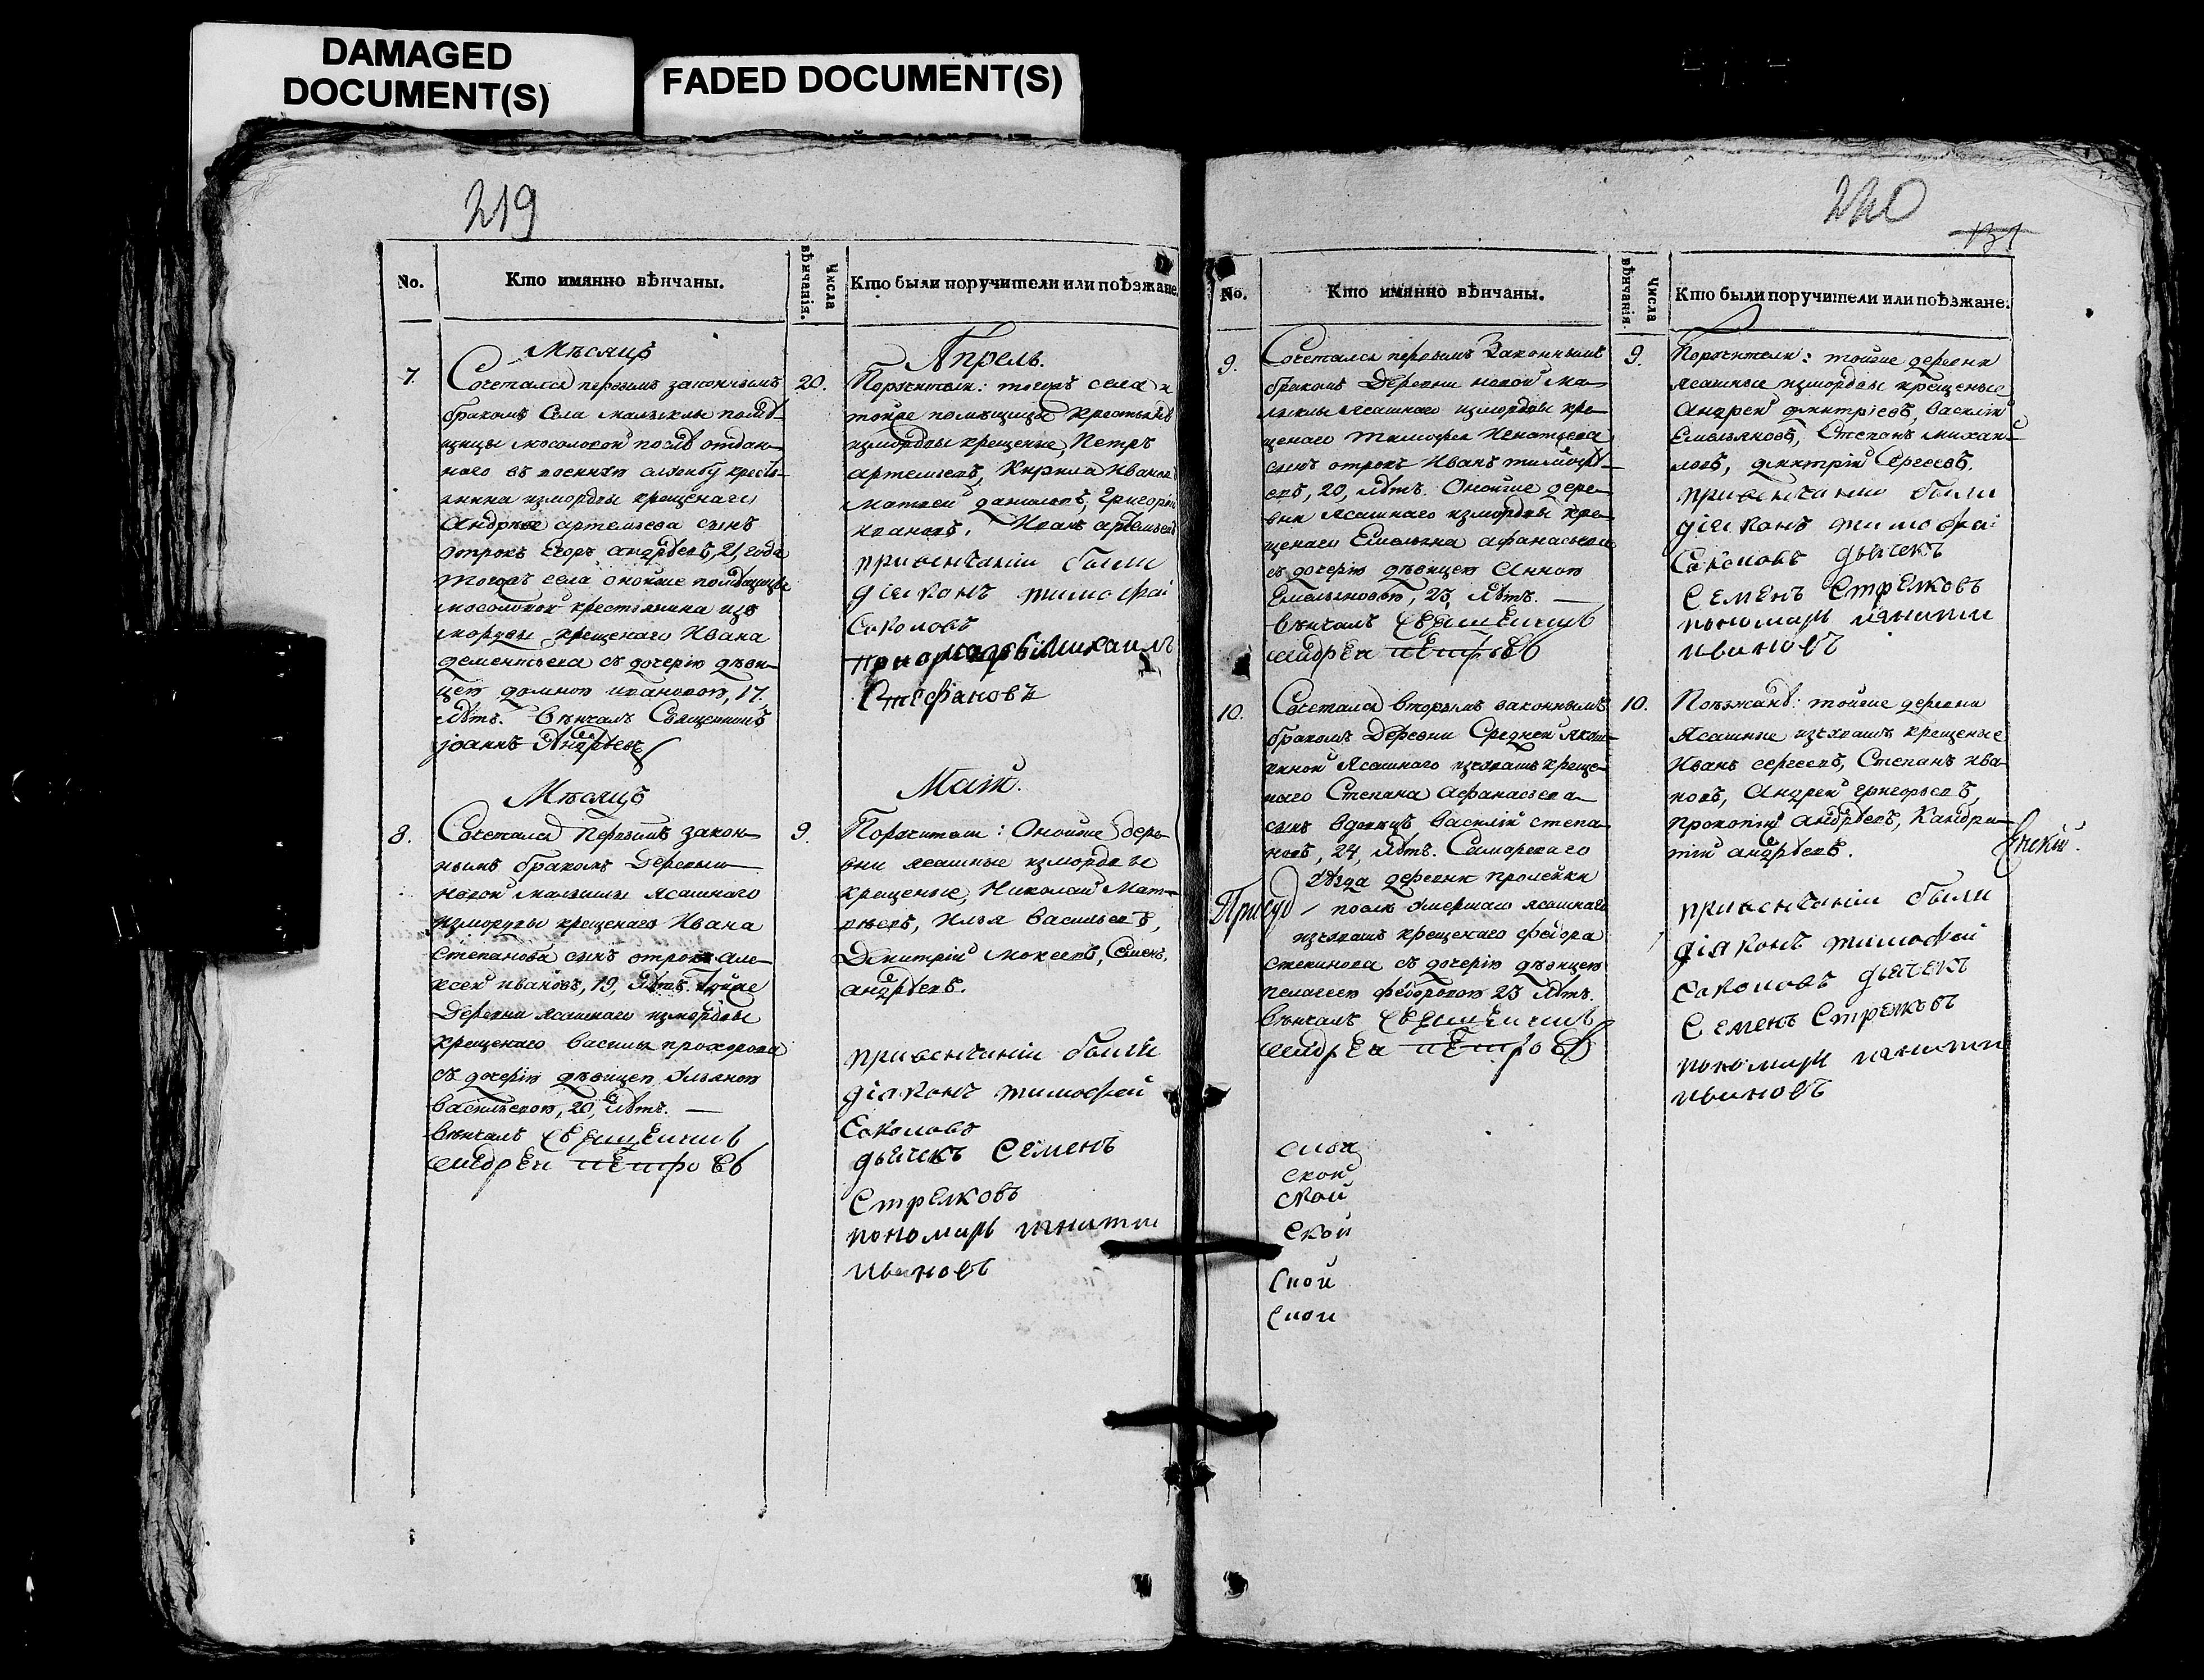 DAMAGED
DOCUMENT(S)
FADED DOCUMENT(S)
219
No.
Кто имянно вѣнчаны.
Числа вѣнчанія.
Кто были поручители или поѣзжане.
Мѣсяцъ
7.
Сочетался первымъ законнымъ
бракомъ Села малыклы помѣ-
щицы мосоловой послѣ отдан-
наго въ военную службу кресть-
янина измордвы крещенаго
Андрея артемьева сынъ
отрокъ Егоръ андрѣевъ, 21, года
тогожъ села оной же помѣщицы
мосоловой крестьянина изъ
мордвы крещенаго Ивана
дементьева съ дочерію дѣви-
цею домною ивановою, 17,
лѣтъ. Вѣнчалъ Священникъ
Іоаннъ Андрѣевъ
20.
Апрель.
Поручители: тогожъ села и
тойже помѣщицы крестьяне
измордвы крещеные, Петръ
артемьевъ, Кирила Ивановъ
матвей данилевъ, Григорій
ивановъ, Иванъ артемьевъ
при венчаніи были
діяконъ тимофей
Соколовъ
пономарь Михаилъ
Стефановъ
Мѣсяцъ
8.
Сочетался Первымъ закон-
нымъ бракомъ Деревни
новой малыклы ясашнаго
измордвы крещенаго Ивана
Степанова сынъ отрокъ але-
ксей ивановъ, 19, лѣтъ. Тойже
Деревни ясашнаго измордвы
крещенаго василья прохорова
съ дочерію дѣвицею Ульяною
васильевою, 20, лѣтъ. —
Вѣнчалъ Священникъ
андрей петровъ
9.
Маій.
Поручители: Оной же дере-
вни ясашные измордвы
крещеные, Николай Мат-
вѣевъ, Илья Васильевъ,
Димитрій мокеевъ, Семенъ
андрѣевъ.
при венчаніи были
діяконъ тимофей
Соколовъ
дьячекъ Семенъ
Стрелковъ
пономарь игнатий
ивановъ
220
131
No.
Кто имянно вѣнчаны.
Числа вѣнчанія.
Кто были поручители или поѣзжане.
9.
Сочетался первымъ Законнымъ
бракомъ Деревни новой ма-
лыклы ясашнаго измордвы кре-
щенаго тимофея Игнатьева
сынъ отрокъ Иванъ тимофѣ-
евъ, 20, лѣтъ. Оной же дере-
вни ясашнаго измордвы кре-
щенаго Емельяна афанасьева
съ дочерію дѣвицею Анною
Емельяновою, 23, лѣтъ. —
Вѣнчалъ Священникъ
андрей петровъ
9.
Поручители: тойже деревни
ясашные измордвы крещеные
Андрей дмитріевъ, василій
Емельяновъ, Степанъ михай-
ловъ, дмитрій Сергеевъ.
при венчаніи были
діяконъ тимофей
Соколовъ дьячекъ
Семенъ Стрелковъ
пономарь игнатий
ивановъ
10.
Сочетался вторымъ законнымъ
бракомъ Деревни Средней якуш-
киной Ясашнаго изчувашъ креще-
наго Степана Афанасьева
сынъ вдовецъ василій степа-
новъ, 24, лѣтъ. Самарскаго
уѣзда деревни пролейки
послѣ умершаго ясашнаго
изчувашъ крещенаго федора
степанова съ дочерію дѣвицею
пелагеею федоровою 23 лѣтъ.
Вѣнчалъ Священникъ
андрей петровъ
10.
Поѣзжанѣ: тойже деревни
Ясашные изчувашъ крещеные
Иванъ сергеевъ, Степанъ ива-
новъ, Андрей григорьевъ,
прокопій андрѣевъ, Кандра-
тій андрѣевъ.
при венчаніи были
діяконъ тимофей
Соколовъ дьячекъ
Семенъ Стрелковъ
пономарь игнатий
ивановъ
ской
ской
ской